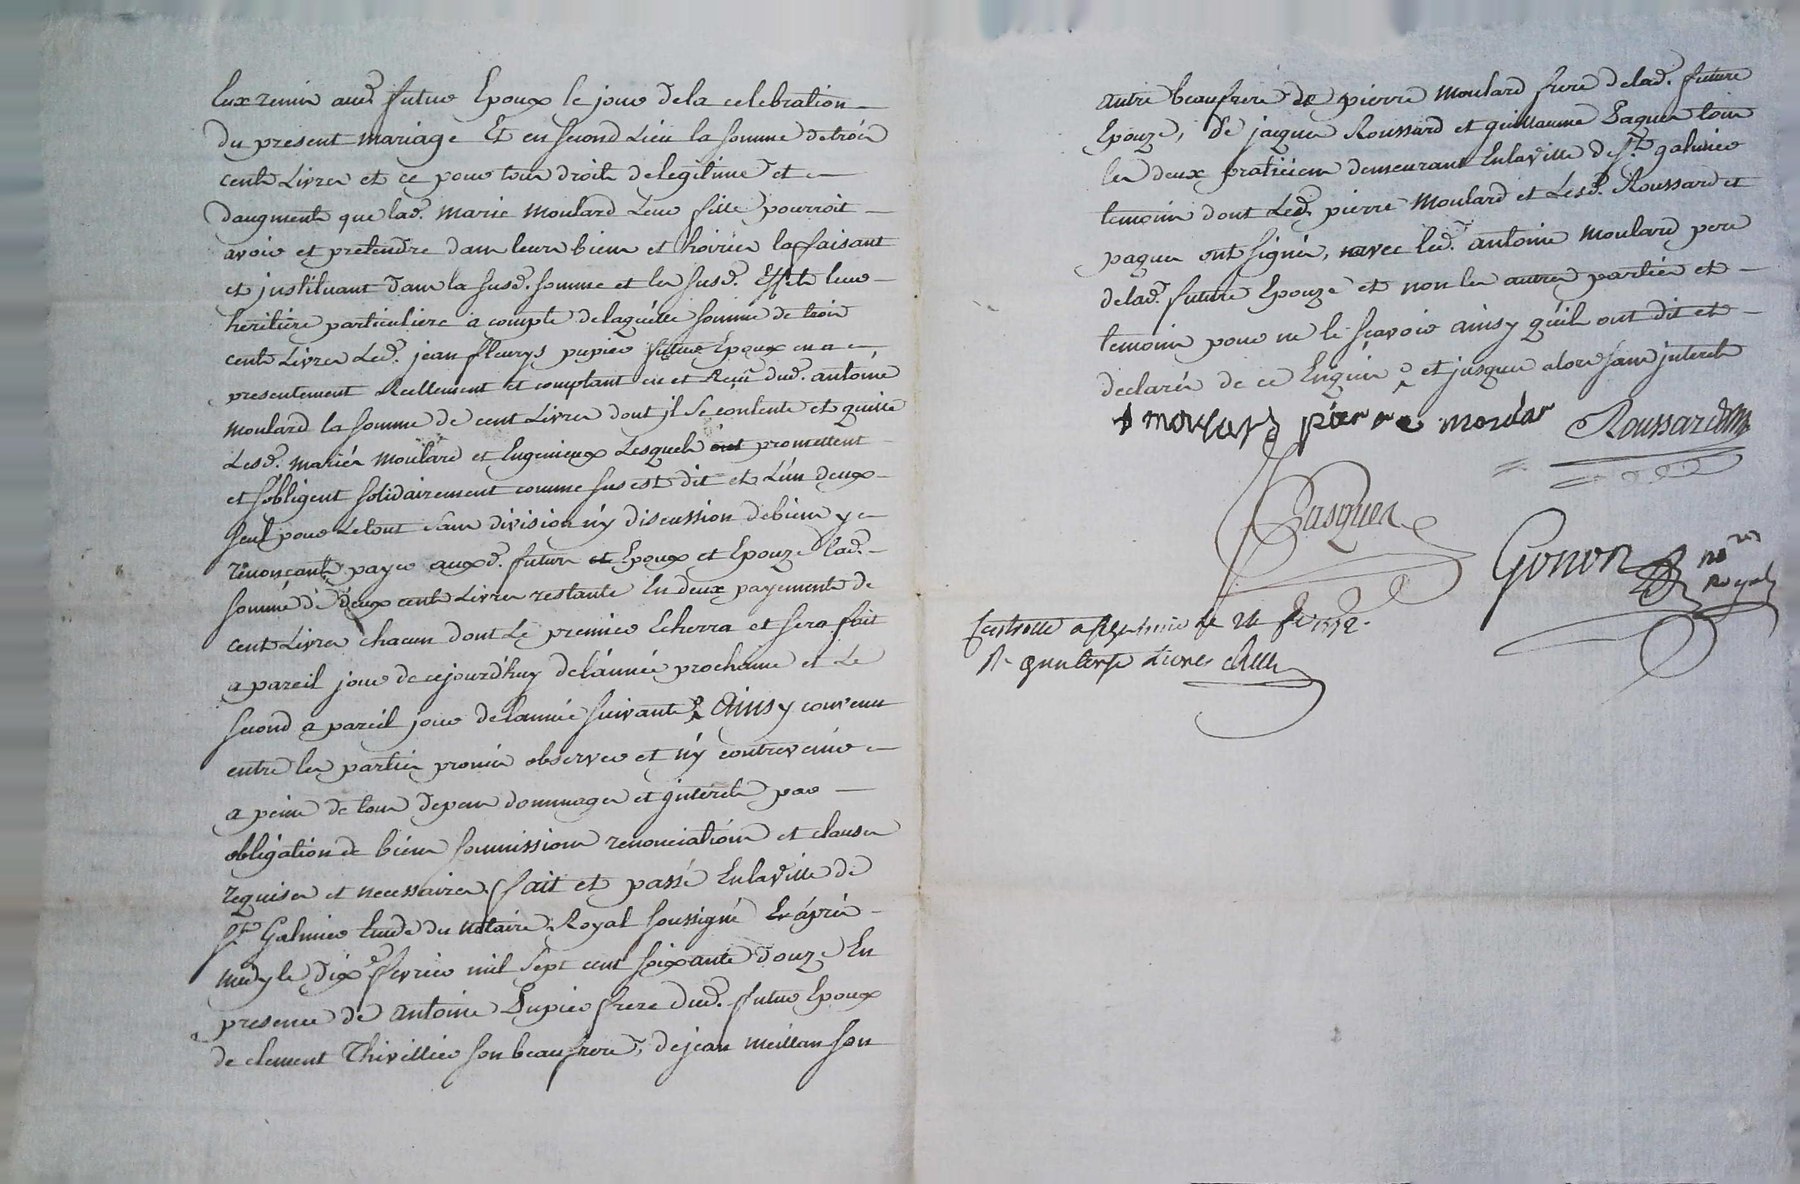 Eux remis aud. futur Epoux le jour de la celebration
du present mariage Et en second Lieu la somme de trois
cents Livres et ce pour tous droits de legitime et
d'augments que lad. marie moulard Leur fille pourroit
avoir et pretendre dans leurs biens et hoiries la faisant
et jnstituant dans la susd. somme et les susd. Effets leur
heritiere particuliere a compte de laquelle somme de trois
cents Livres Led. jean fleurys pupier futur Epoux en a
presentement Reellement et comptant eu et Reçu dud. antoine
moulard la somme de cent Livres dont jl se contente et quitte
Lesd. mariés moulard et Engenieux Lesquels promettent
et s'obligent solidairement comme sus est dit et L'un deux
seul pour Letout sans division n'y discussion de biens y
renonçants payer auxd. futurs Epoux et Epouze lad.
somme de deux cents Livres restante En deux payements de
cent Livres chacun dont Le premier Echerra et sera fait
a pareil jour de cejourd'huy de l'année prochaine et Le
second a pareil jour de lannée suivante Ainsy convenu
entre les parties promis observer et n'y contrevenir
a peine de tous depens dommages et jnterets par
obligation de biens soumissions renonciations et clauses
requises et necessaires, fait et passé En la ville de
St. Galmier Etude du notaire Royal soussigné Le après
midy le dixe fevrier mil sept cent soixante douze En
presence de antoine Pupier frere dud. futur Epoux
de clement Thivillier son beaufrere, de jean meillan son
autre beaufrere de pierre moulard frere de lad. future
Epouze, de jacques Roussard et guillaume Paquer tous
les deux praticiens demeurant En la ville de St. galmier
temoins dont Led. pierre Moulard et Lesd. Roussard et
paquer ont signés, avec led. antoine moulard pere
de lad. future Epouze et non les autres parties et
temoins pour ne le sçavoir ainsy quils ont dit et
declarés de ce Enquis et jusques alors sans jnterets
pierre mordar Roussard
Pasquer
Gonon nore
Royal
Controllé a St galmier le 24 fev 1772.
R. livres